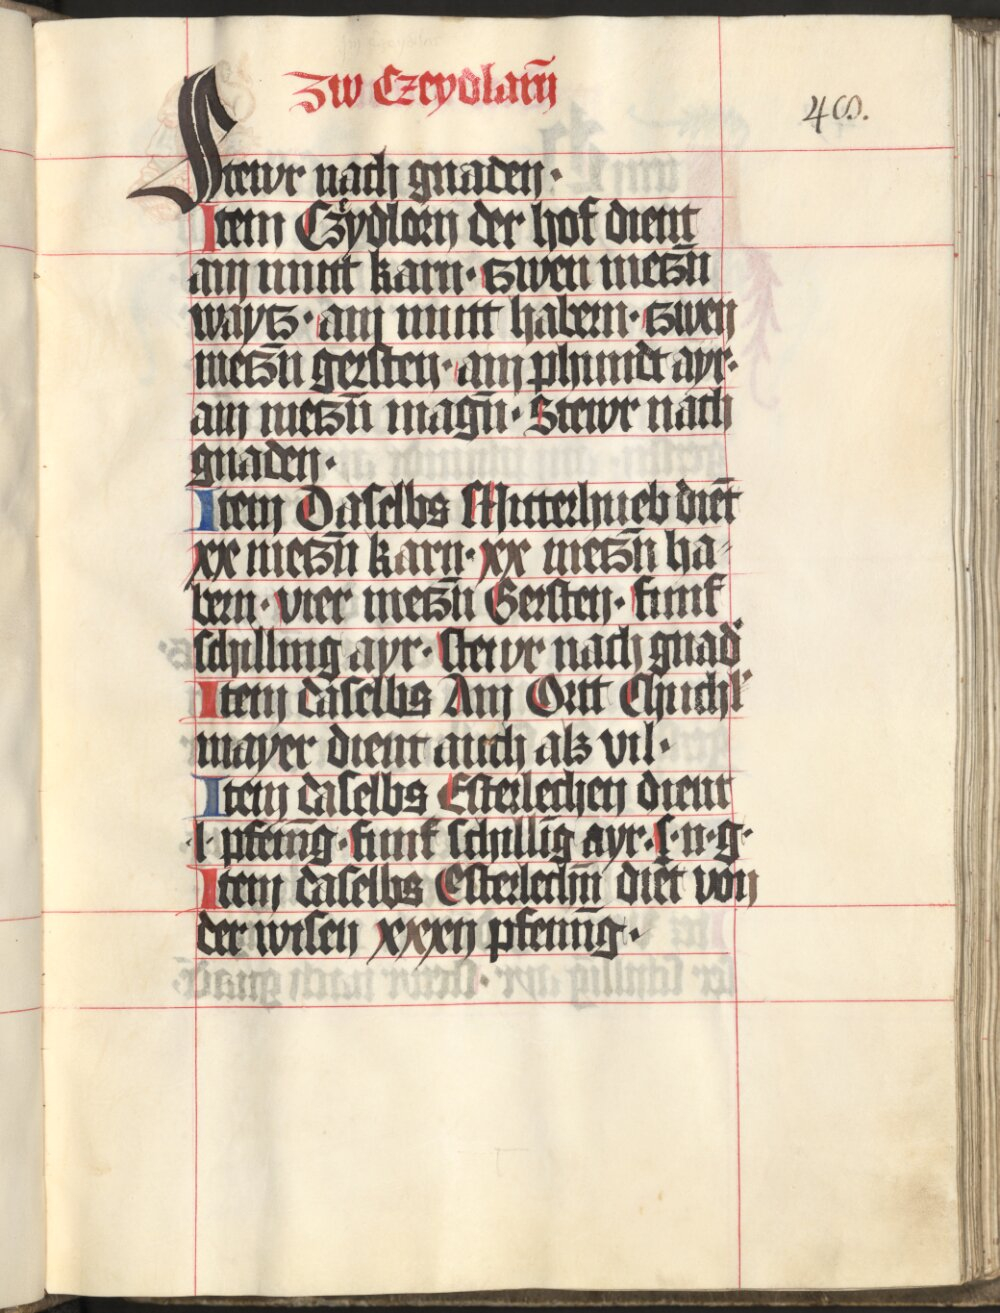 Zw Czeydlarn̄
40.
Stewr nach gnaden·
Item Czydlorn der hof dient
ain mutt karn· zwen metzn̄
waytz· ain mutt habern· zwen
metzn̄ gersten· ain phundt ayr·
ain metzn̄ magn̄· Stewr nach
gnaden·
Item Daselbs Mitterhueb diēt
xx metzn̄ karn· xx metzn̄ ha⸗
bern· vier metzn̄ Gersten· funf
schilling ayr· stewr nach gnad
Item daselbs Am Ortt
mayer dient auch als vil·
Item daselbs Esterlechen dient
l pfenīg· funf schillīg ayr· s·n·g·
Item daselbs Esterlechn̄ diēt von
der wisen xxxij pfenīg·